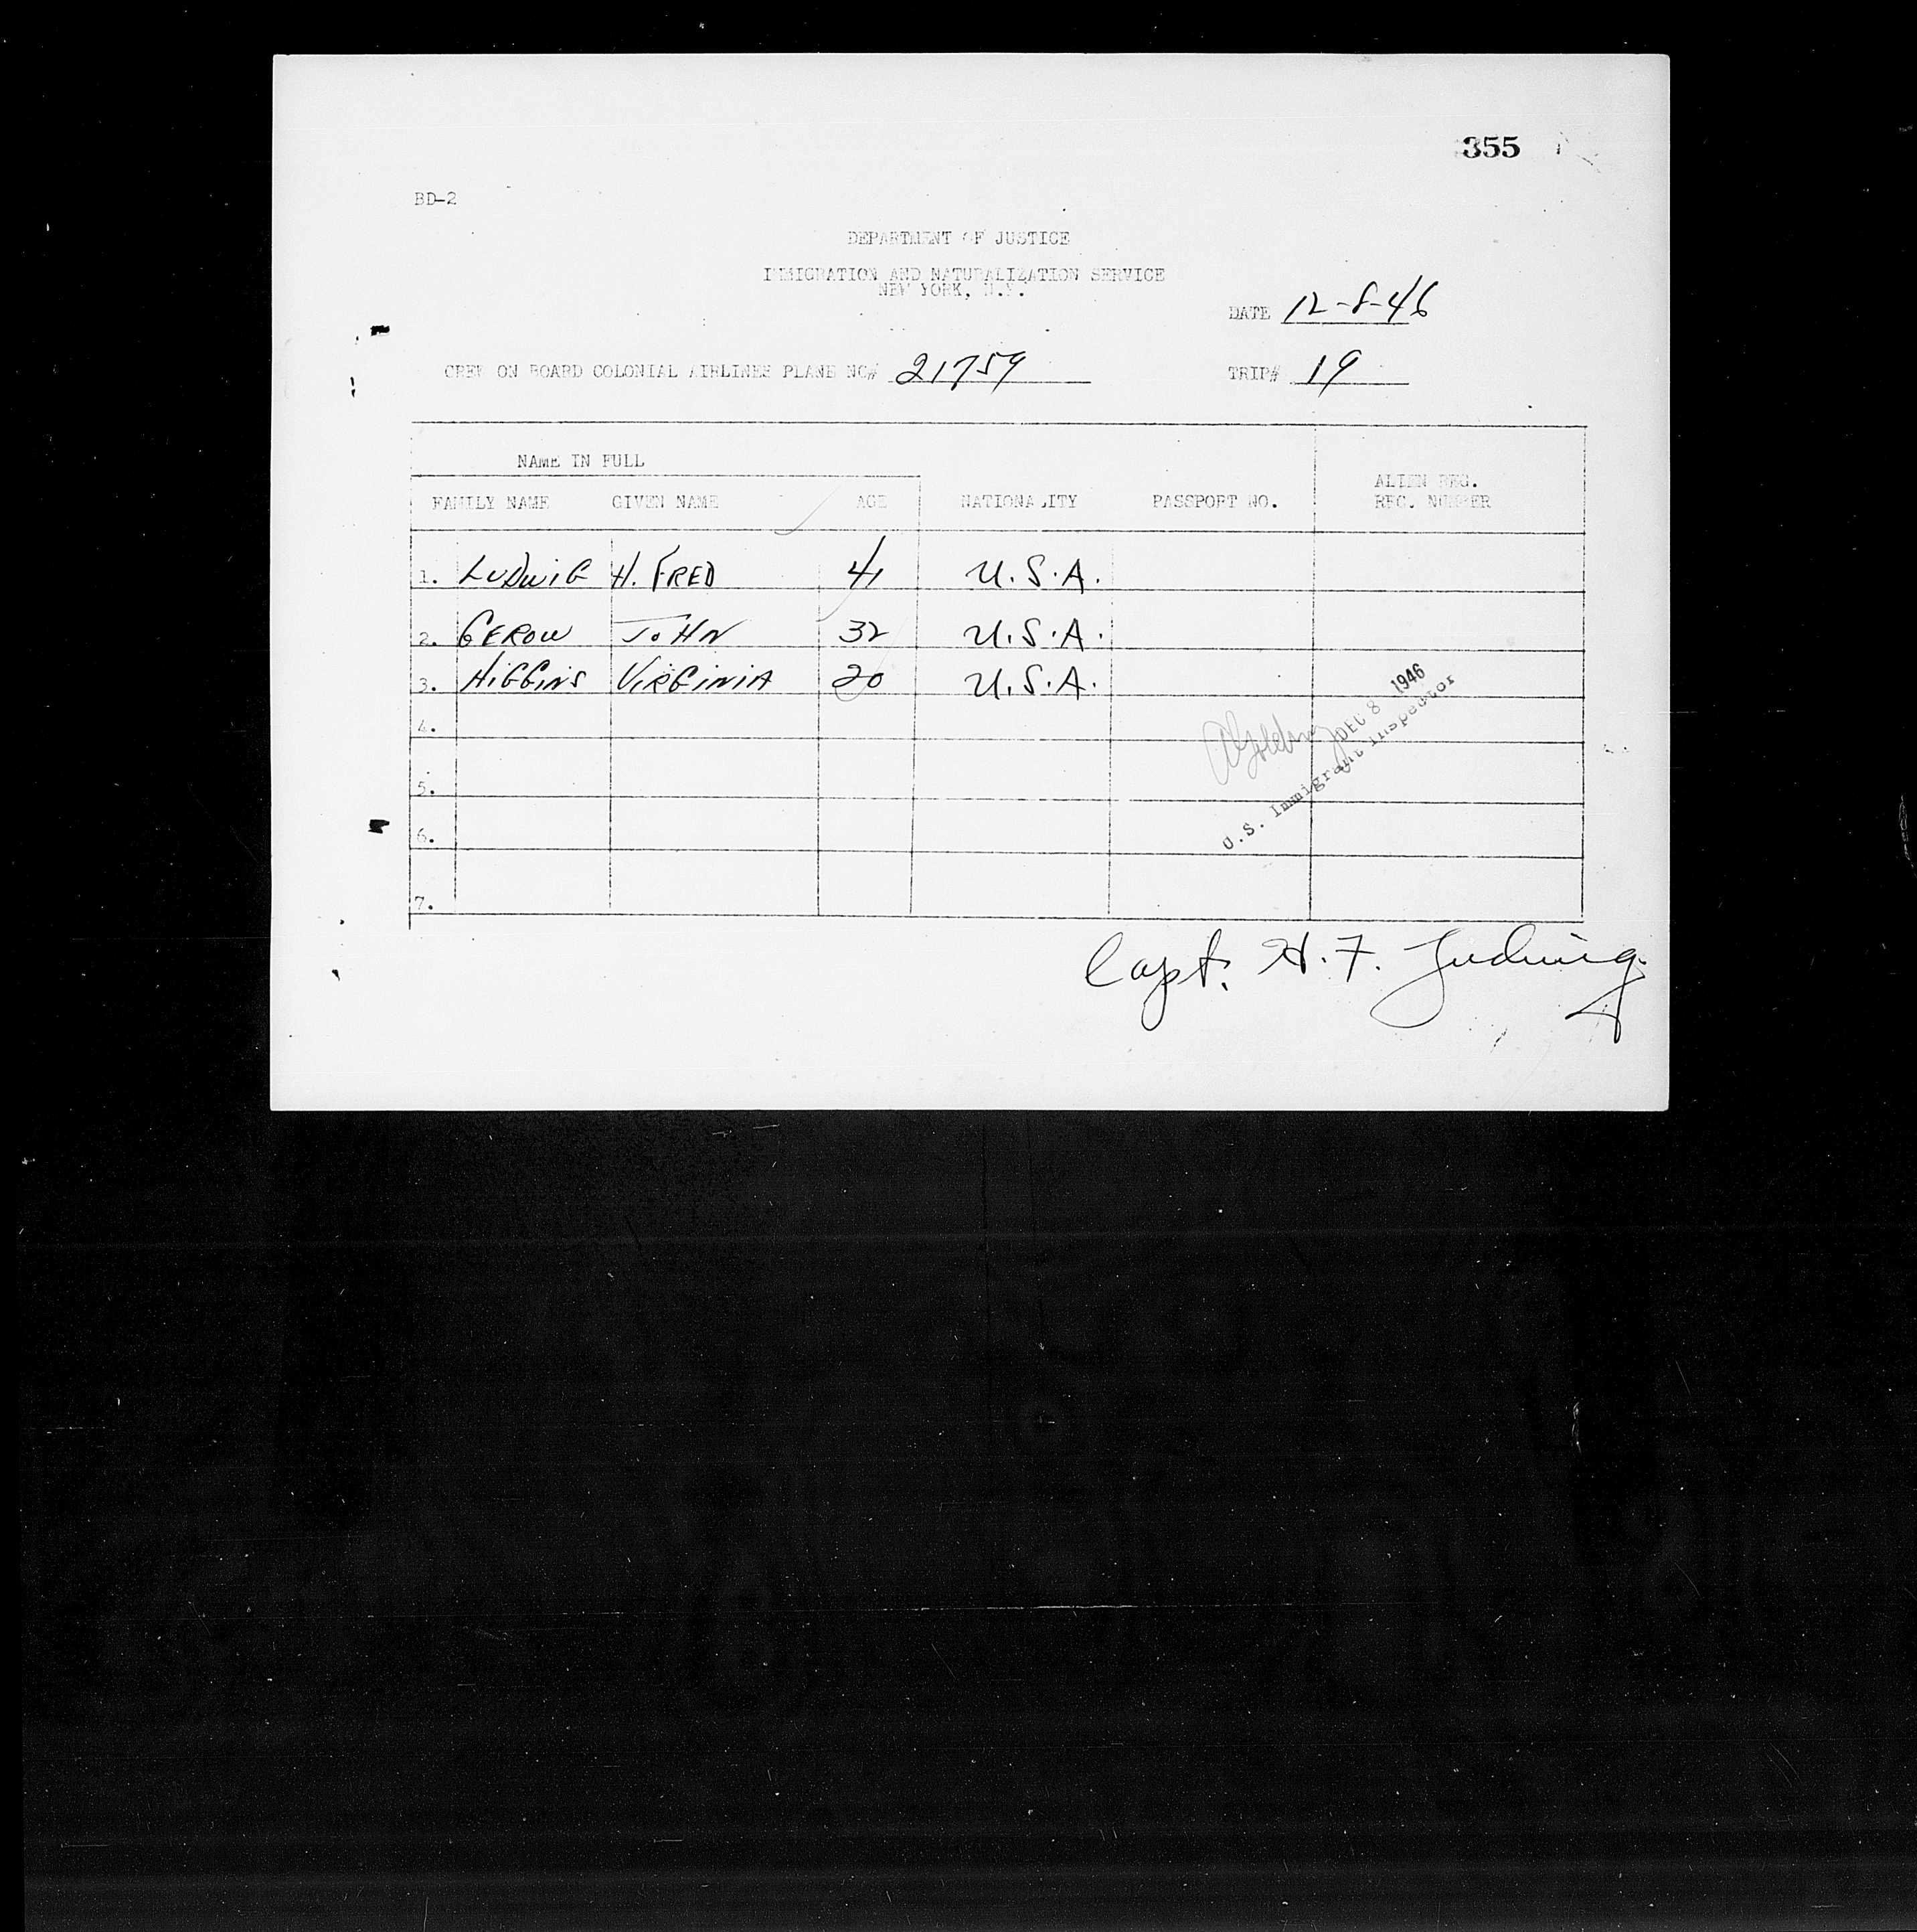 355
BD-2
DEPARTMENT OF JUSTICE
IMMIGRATION AND NATURALIZATION SERVICE
NEW YORK, N.Y.
DATE 12-8-46
CREW ON BOARD COLONIAL AIRLINES PLANE NO# 21759 TRIP# 19
NAME IN FULL
ALIEN REG.
FAMILY NAME GIVEN NAME AGE NATIONALITY PASSPORT NO. REG. NUMBER
1. LUDWIG H. FRED 41 U.S.A.
2. GEROW JOHN 32 U.S.A.
3. HIGGINS VIRGINIA 20 U.S.A.
4.
5.
6.
7.
DEC 8 1946
U.S. Immigrant Inspector
Capt. H. F. Ludwig